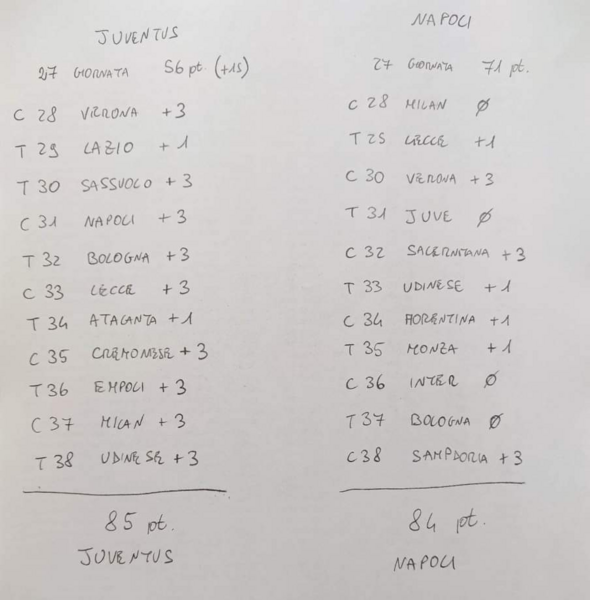 JUVENTUS
27 GIORNATA 56 pt. (+15)
C 28 VERONA +3
T 29 LAZIO +1
T 30 SASSUOLO +3
C 31 NAPOLI +3
T 32 BOLOGNA +3
C 33 LECCE +3
T 34 ATALANTA +1
C 35 CREMONESE +3
T 36 EMPOLI +3
C 37 MILAN +3
T 38 UDINESE +3
85 pt.
JUVENTUS
NAPOLI
27 GIORNATA 71 pt.
C 28 MILAN Ø
T 29 LECCE +1
C 30 VERONA +3
T 31 JUVE Ø
C 32 SALERNITANA +3
T 33 UDINESE +1
C 34 FIORENTINA +1
T 35 MONZA +1
C 36 INTER Ø
T 37 BOLOGNA Ø
C 38 SAMPDORIA +3
84 pt.
NAPOLI